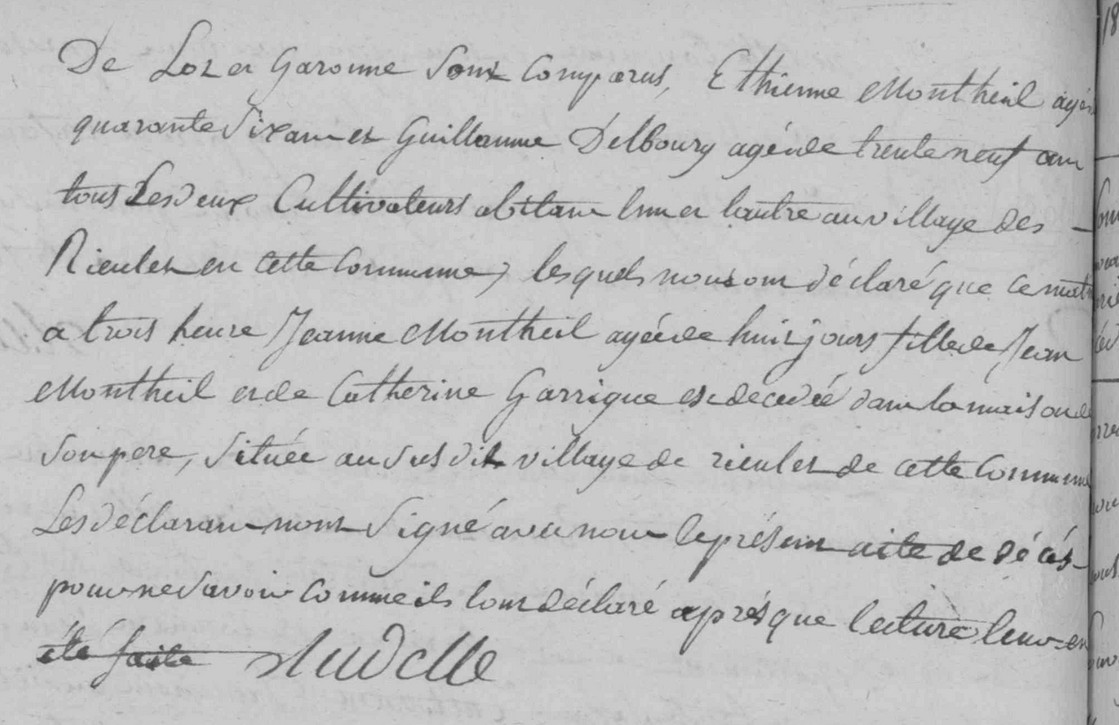 De Lot et Garonne Sont Comparus, Ethienne Montheil agé de
quarante Six ans et Guillaume Delboury agé de trente neuf ans
tous Les deux Cultivateurs abitant lun et lautre au village des
Rieules en cette Commune, lesquels nous ont déclaré que ce matin
a trois heure Jeanne Montheil agée de huit jours fille de Jean
Montheil et de Catherine Garrigue est decedée dans la maison de
Son pere, Située au Sus dit village de rieules de cette Commune
Les déclarans nont Signé avec nous le présent acte de décés
pour ne Savoir Comme ils lont déclaré aprés que lecture leur en
été faite